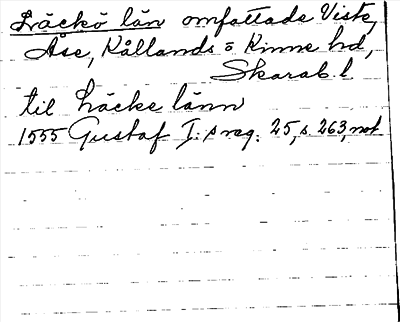 Läckö län omfattade Viste,
Åse, Kållands o Kinne hd,
Skarab. l.
til Läcke länn
1555 Gustaf I:s reg. 25, s. 263, not